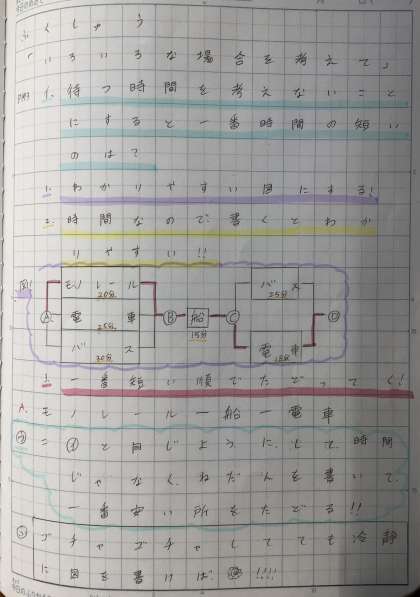 ふくしゅう
「いろいろな場合を考えて」
例 1. 待つ時間を考えないこと
にすると一番時間の短い
のは?
1. わかりやすい図にする!
2. 時間なので書くとわか
りやすい!!
図!
モノレール 20分
電車 25分
バス 30分
A
B
船 15分
C
バス 25分
電車 18分
D
3. 一番短い順でたどっていく!
A. モノレール－船－電車
② こ①と同じように、して、時間
じゃなく、ねだんを書いて、
一番安い所をたどる!!
ゴチャゴチャしてても冷静
に図を書けば OK!!!!